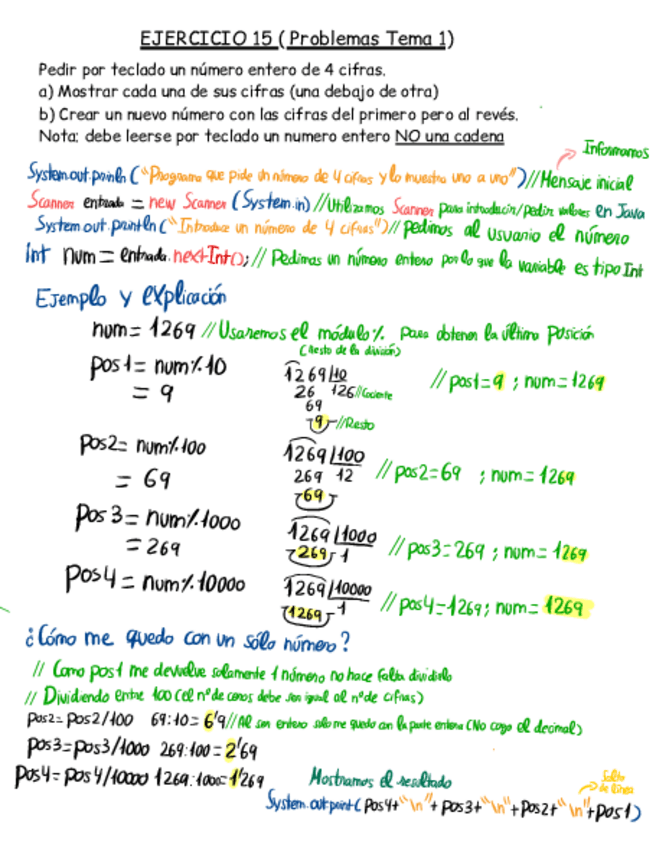 EJERCICIO 15 ( Problemas Tema 1)
Pedir por teclado un número entero de 4 cifras.
a) Mostrar cada una de sus cifras (una debajo de otra)
b) Crear un nuevo número con las cifras del primero pero al revés.
Nota: debe leerse por teclado un numero entero NO una cadena
Informamos
System.out.println ("Programa que pide un número de 4 cifras y lo muestra uno a uno")//Mensaje inicial
Scanner entrada = new Scanner (System.in) //Utilizamos Scanner para introducir/pedir valores en Java
System.out.println ("Introduce un número de 4 cifras")// pedimos al usuario el número
int num = entrada.nextInt(); // Pedimos un número entero por lo que la variable es tipo Int
Ejemplo y explicación
num = 1269 //Usaremos el módulo % para obtener la última posición
(Resto de la división)
pos1 = num%10
= 9
1269 10
26 126 //Cociente
69
9 //Resto
//pos1=9 ; num=1269
pos2= num%100
= 69
1269 100
269 12
69
// pos2=69 ; num=1269
pos3= num%1000
= 269
1269 1000
269 1
//pos3=269 ; num=1269
pos4= num%10000
1269 10000
1269 1
//pos4=1269; num= 1269
¿Cómo me quedo con un sólo número?
// Como pos1 me devuelve solamente 1 número no hace falta dividirlo
// Dividiendo entre 100 (el nº de ceros debe ser igual al nº de cifras)
pos2= pos2/100 69:10=6'9//Al ser entero solo me quedo con la parte entera (No cojo el decimal)
pos3=pos3/1000 269:100=2'69
pos4= pos4/10000 1269:1000=1'269
Mostramos el resultado
Salto de línea
System.out.print( pos4+"\n"+ pos3+"\n"+pos2+"\n"+pos1)